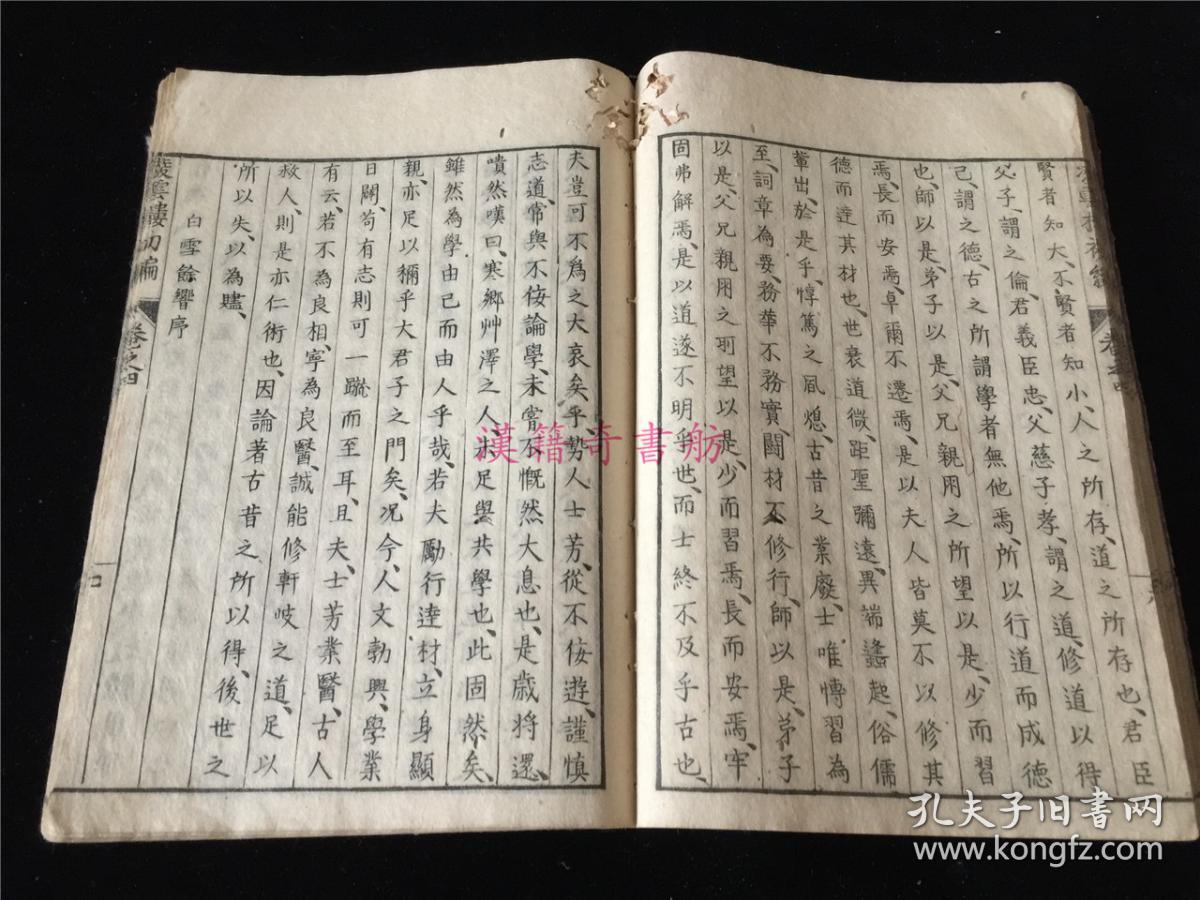 賢者知大、不賢者知小、人之所存、道之所存也、君臣
父子、謂之倫、君義臣忠、父慈子孝、謂之道、修道以得
己、謂之德、古之所謂學者無他焉、所以行道而成德
也、師以是、弟子以是、父兄親用之所望以是、少而習
焉、長而安焉、卓爾不遷焉、是以夫人皆莫不以修其
德而達其材也、世衰道微、距聖彌遠、異端蠭起、俗儒
輩出、於是乎、惇篤之風熄、古昔之業廢、士唯博習為
至、詞章為要、務華不務實、鬪材不修行、師以是、弟子
以是、父兄親用之所望以是、少而習焉、長而安焉、牢
固弗解焉、是以道遂不明乎世、而士終不及乎古也、
夫豈可不爲之大哀矣乎、勢人士芳、從不佞遊、謹慎
志道、常與不佞論學、未嘗不慨然大息也、是歳將還、
喟然嘆曰、寒鄉艸澤之人、未足與共學也、此固然矣、
雖然為學由己而由人乎哉、若夫勵行達材、立身顯
親、亦足以彌乎大君子之門矣、况今人文勃興、學業
日闢、苟有志則可一蹴而至耳、且夫士芳業醫、古人
有云、若不為良相、寧為良醫、誠能修軒岐之道、足以
救人、則是亦仁術也、因論著古昔之所以得、後世之
所以失、以為贐、
白雪餘響序
凌雲樓初編
卷之四
漢籍奇書舫
孔夫子旧書网
www.kongfz.com